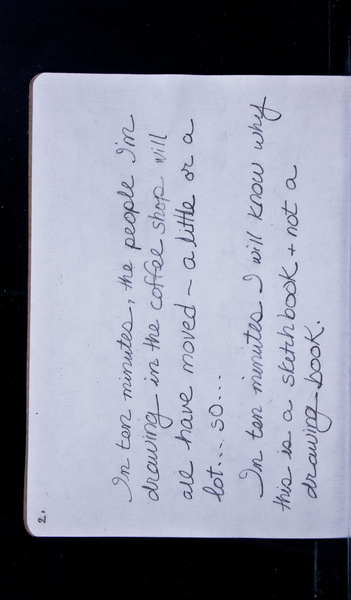 2.
In ten minutes, the people I'm
drawing in the coffee shop will
all have moved ~ a little or a
lot... so...
In ten minutes I will know why
this is a sketchbook + not a
drawing book.